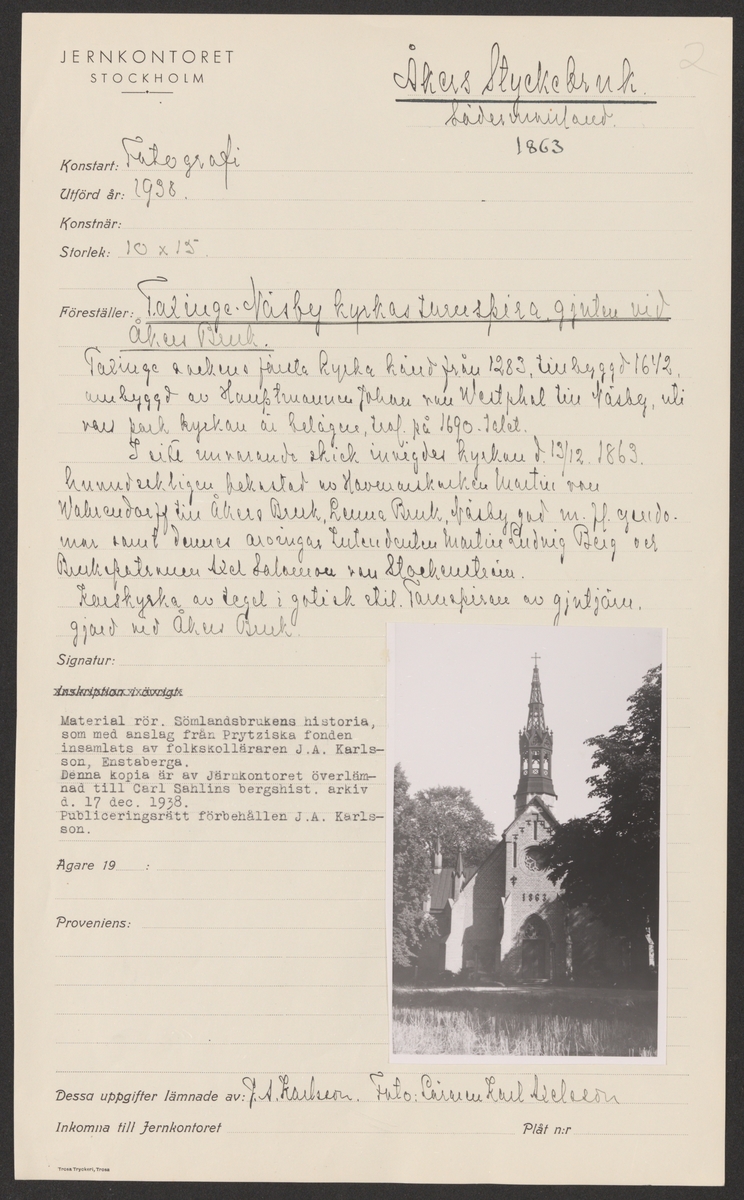 JERNKONTORET
STOCKHOLM
2
Åkers Styckebruk.
Södermanland.
1863
Konstart: Fotografi
Utförd år: 1938.
Konstnär:
Storlek: 10 x 15.
Föreställer: Taxinge-Näsby kyrkas tornspira, gjuten vid
Åkers Bruk.
Taxinge sockens första kyrka känd från 1283, tillbyggd 1642,
ombyggd av Hauptmannen Johan von Westphal till Näsby, uti
vars park kyrkan är belägen, trol. på 1690-talet.
I sitt nuvarande skick invigdes kyrkan d. 13/12 1863.
huvudsakligen bekostad av Hovmarskalken Martin von
Wahrendorff till Åkers Bruk, Lenna Bruk, Näsby god m. fl. egendo-
mar samt dennes arvingar Intendenten Martin Ludvig Berg och
Brukspatronen Axel Salomon von Stockenström.
Korskyrka av tegel i gotisk stil. Tornspiran av gjutjärn.
gjord vid Åkers Bruk.
Signatur:
Inskription i övrigt:
Material rör. Sömlandsbrukens historia,
som med anslag från Prytziska fonden
insamlats av folkskolläraren J.A. Karls-
son, Enstaberga.
Denna kopia är av Järnkontoret överläm-
nad till Carl Sahlins bergshist. arkiv
d. 17 dec. 1938.
Publiceringsrätt förbehållen J.A. Karls-
son.
1863
Ägare 19 :
Proveniens:
Dessa uppgifter lämnade av: J. A. Karlsson. Foto: Karl Axelsson
Inkomna till Jernkontoret
Plåt n:r
Trosa Tryckeri, Trosa